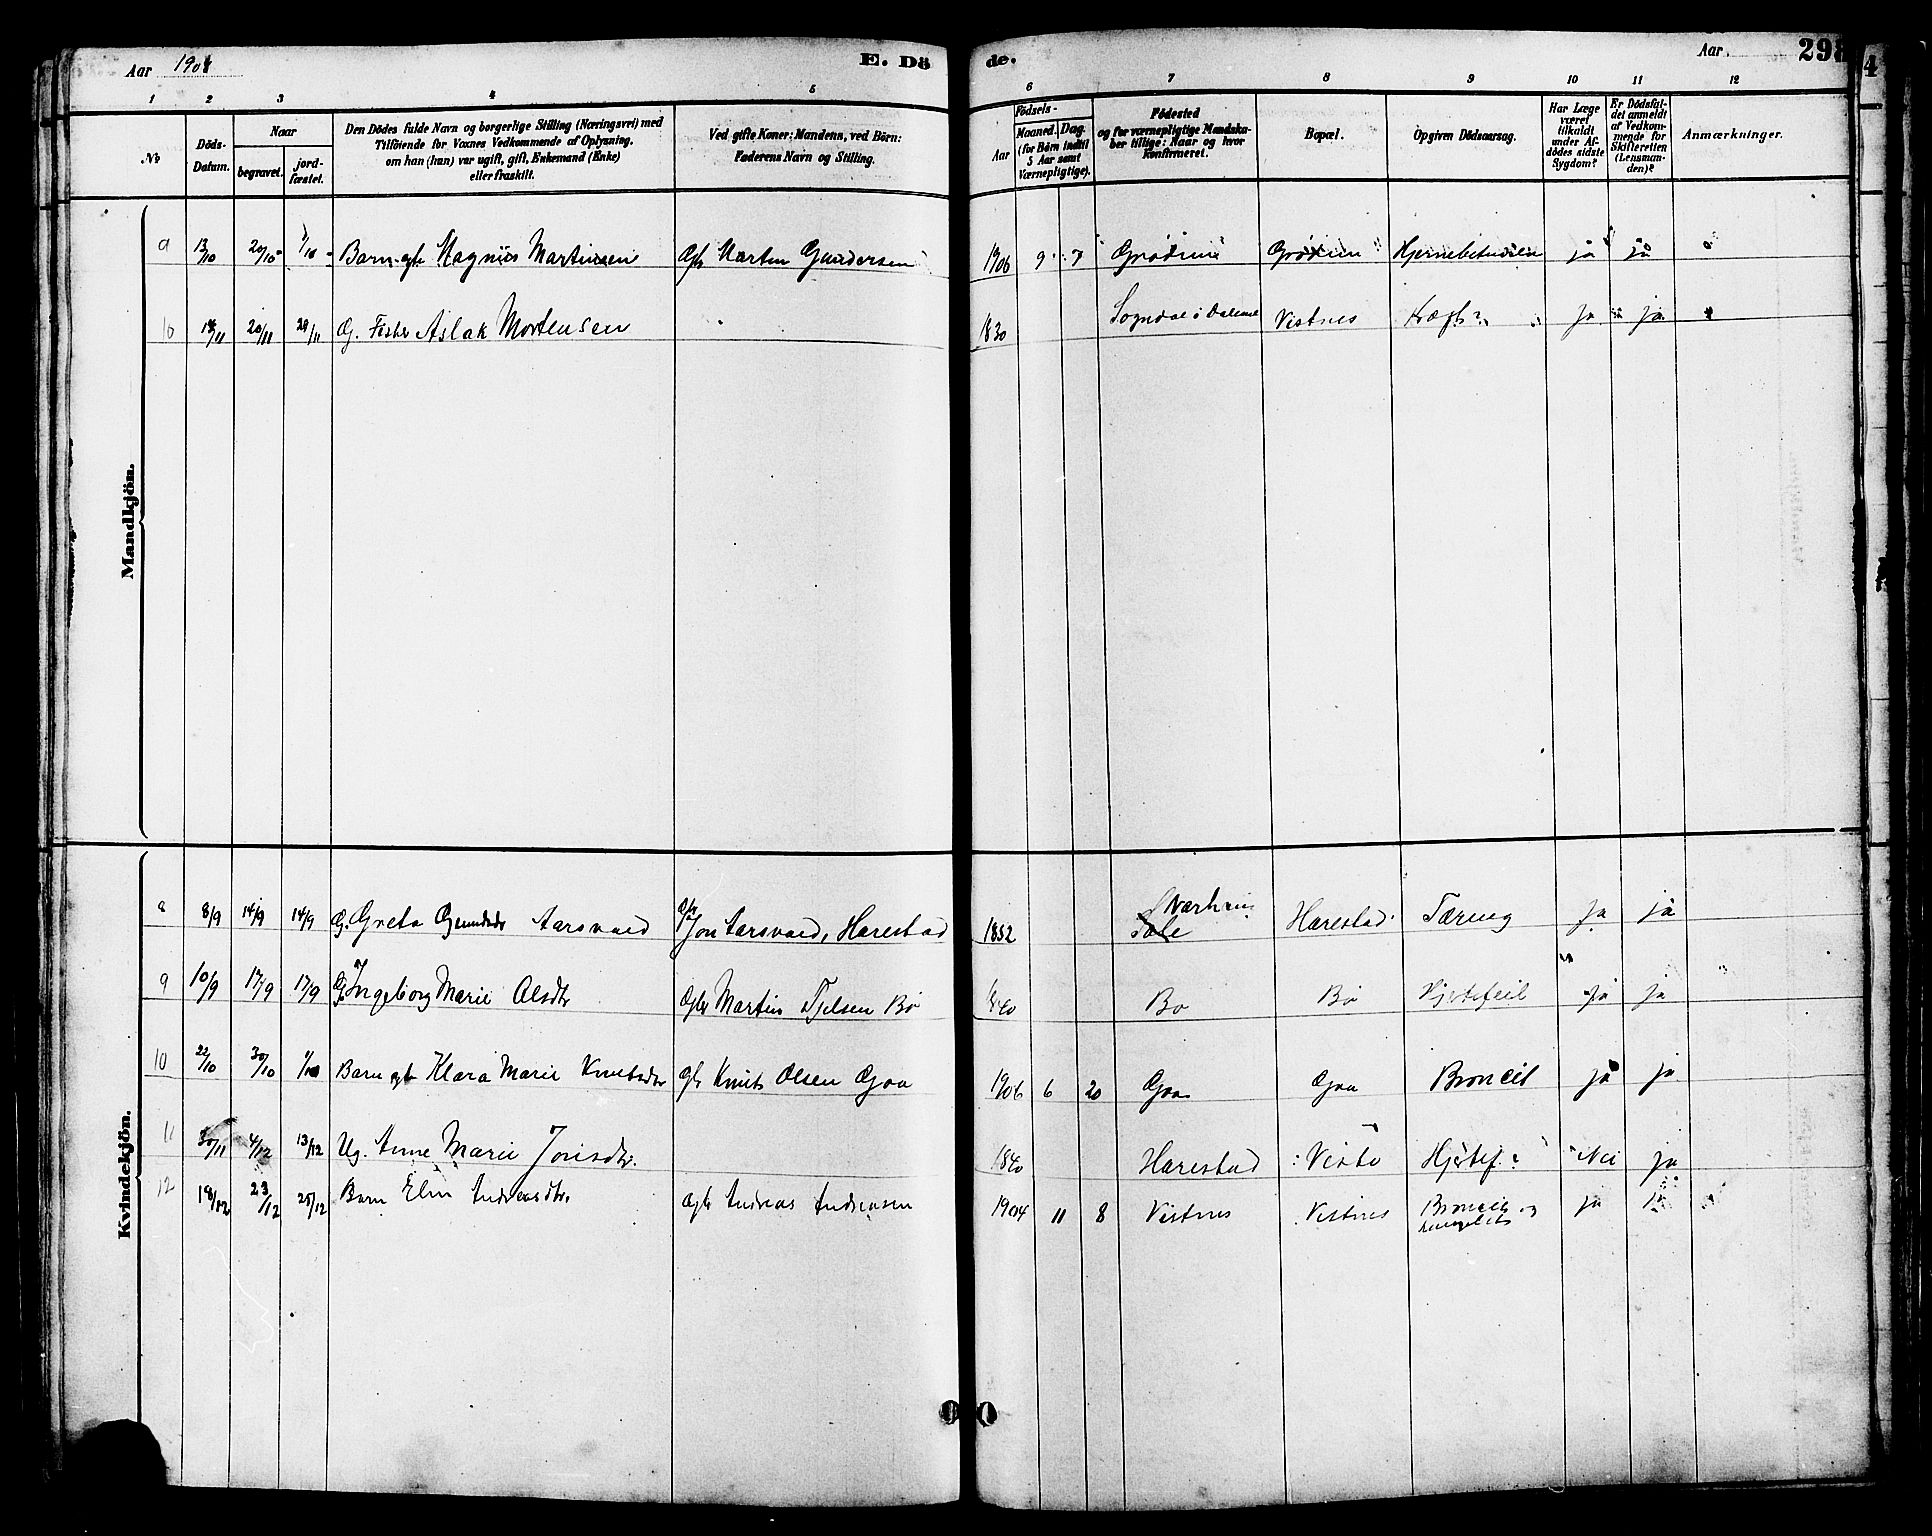 Aar 190
E. Dö
de.
Aar.
298
4
1 2 3 4 5 6 7 8 9 10 11 12
No
Döds-Datum.
Naar
begravet.
jord-fæstet.
Den Dödes fulde Navn og borgerlige Stilling (Næringsvei) med
Tilföiende for Voxnes Vedkommende af Oplysning,
om han (hun) var ugift, gift, Enkemand (Enke)
eller fraskilt.
Ved gifte Koner: Mandens, ved Börn:
Faderens Navn og Stilling.
Födsels-
Aar
Maaned. Dag.
(for Börn indtil
5 Aar samt
Værnepligtige).
Födested
og for værnepligtige Mandska-
ber tillige: Naar og hvor
konfirmeret.
Bopæl.
Opgiven Dödsaarsag.
Har Læge
været
tilkaldt
under Af-
dödes sidste
Sygdom?
Er Dödsfal-
det anmeldt
af Vedkom-
mende for
Skifteretten
(Lensman-
den)?
Anmærkninger.
Mandkjön.
9 13/10 20/10 Barn gb Magnus Martinsen Gbr Marten Gundersen 1906 9 7 Grødem Grødem ja ja
10 20/11 29/11 G. Fisker Aslak Mortensen 1830 Sogndal i Dalerne Vistnes Kræft? ja ja
Kvindekjön.
8 8/9 14/9 14/9 G. Greta Aarsvold Jon Aarsvold, Harestad 1852 Harestad Tæring ja ja
9 10/9 17/9 17/9 G. Ingeborg Marie Olsdtr Gbr Martin Tjelsen Bø 1840 Bø Bø Hjertefeil ja ja
10 22/10 30/10 Barn gb Klara Marie Knutsdtr Gbr Knut Olsen Goa 1906 6 20 Goa Goa Broncit ja ja
11 30/11 4/12 13/12 Ug. Anne Marie Jonsdtr. 1840 Harestad Viste Hjertef.? Nei ja
12 18/12 23/12 25/12 Barn Elin Andreasdtr. Gbr Andreas Andreasen 1904 11 8 Vistnes Vistnes Broncit og ja ja